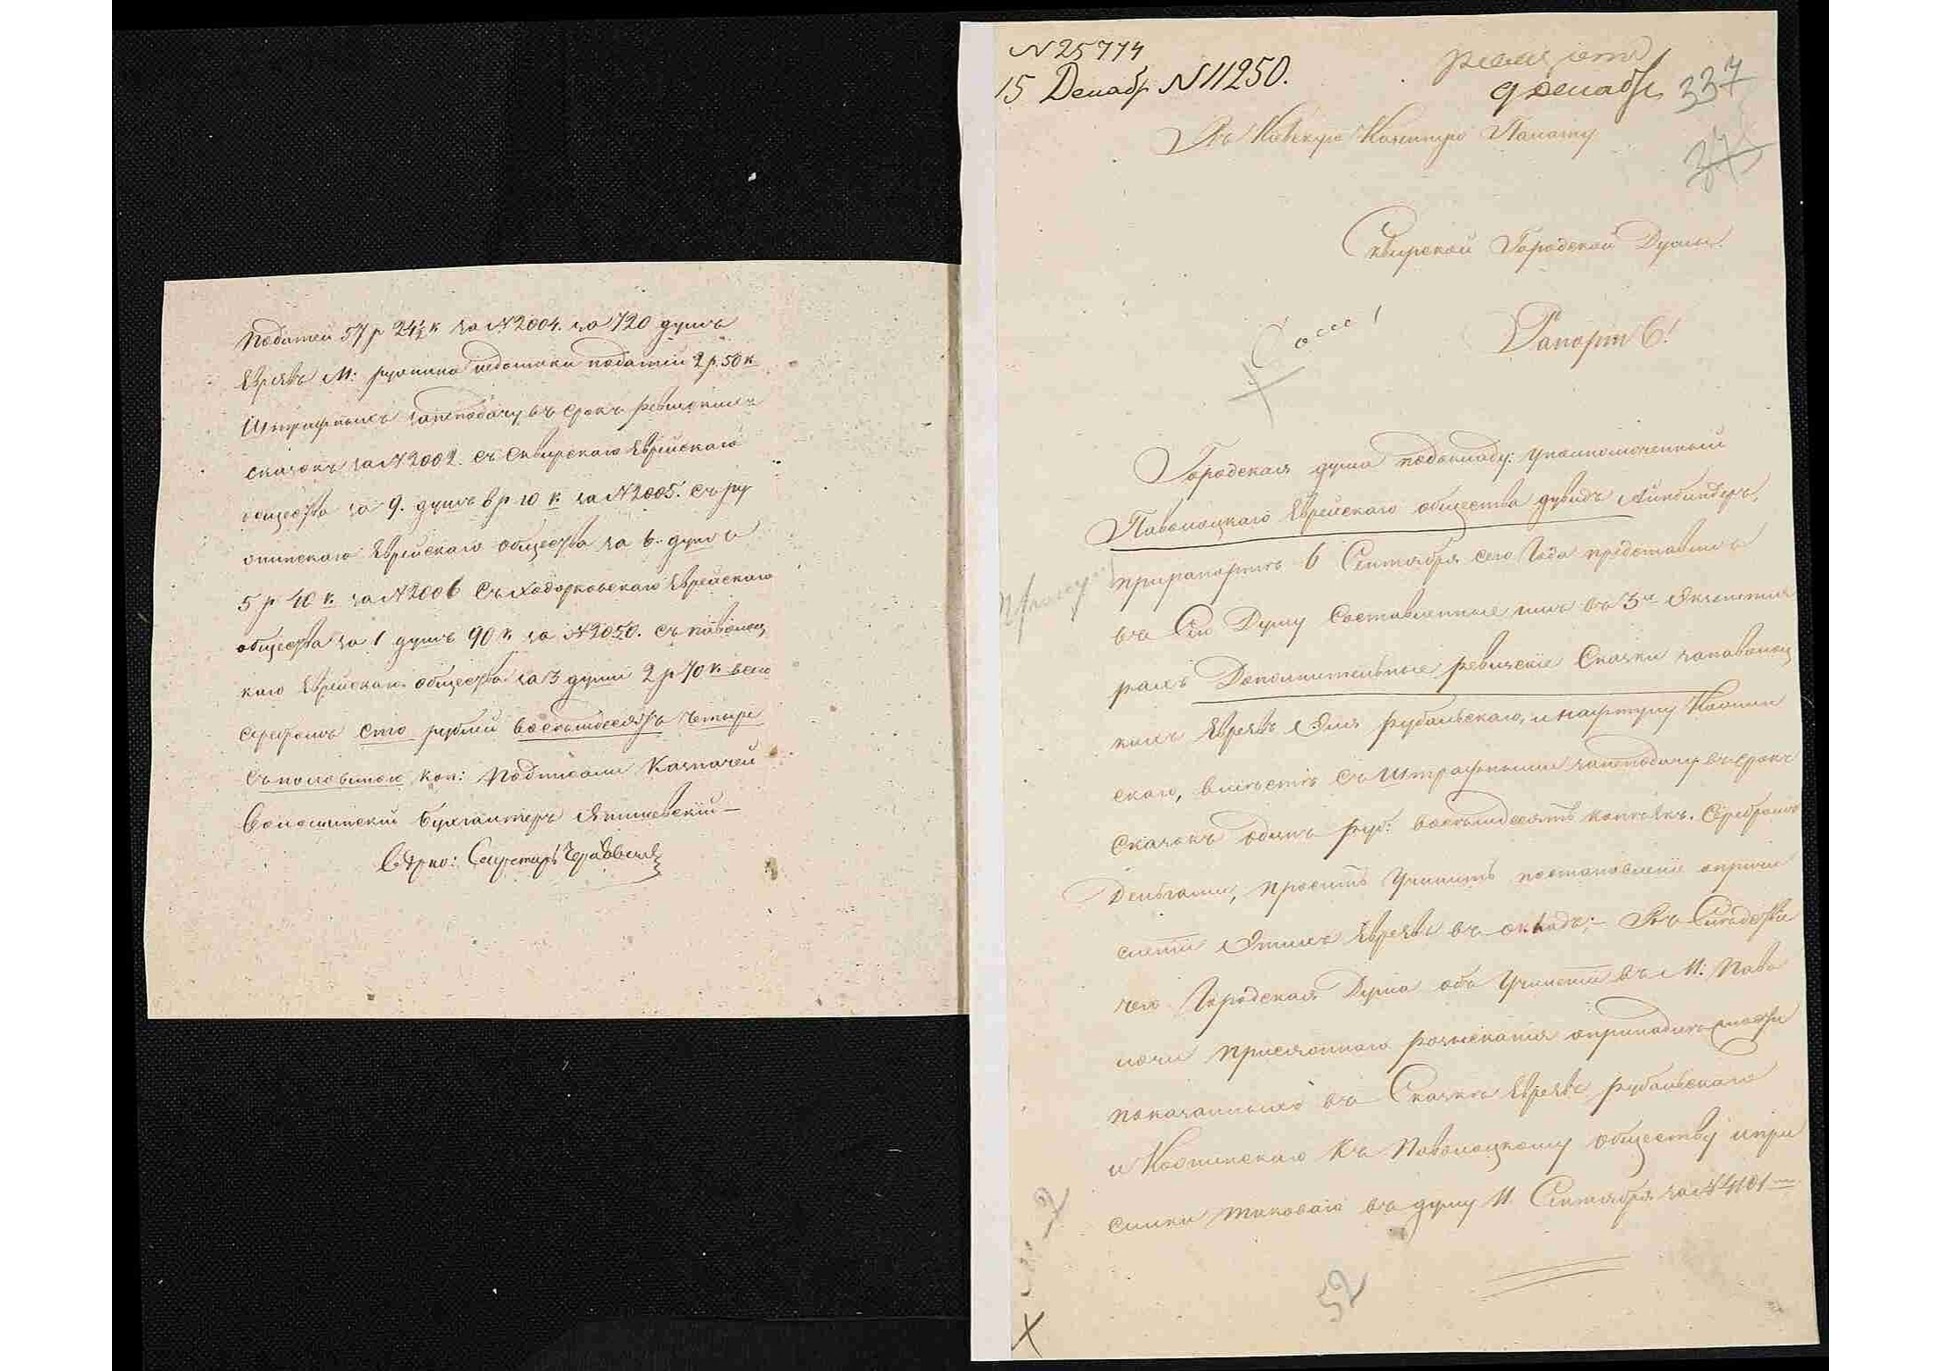 податей 57 р 24½ к за №2004. за 720 душъ
Евреевъ М: ружина недоимки податей 2 р. 50 к
Штрафныхъ занеподачу въ срокъ ревизскихъ
сказокъ за №2002. съ Сквирскаго Еврейскаго
общества за 9. душъ 8 р 10 к за №2005. съ ру
жинскаго Еврейскаго общества за 6. душъ
5 р 40 к за №2006 Съ Ходорковскаго Еврейскаго
общества за 1 душу 90 к за №2050. съ паволоц
каго Еврейскаго общества за 3 души 2 р 70 к всего
серебромъ сто рублей восемьдесятъ четыре
съ половиною коп: Подписали Казначей
Волошинскій Бухгалтеръ
Вѣрно: Секретарь
№ 25774
15 Декабр № 11250.
9 декабр
337
37
Въ Кіевскую Казенную Палату
Сквирской Городской Думы.
Рапортъ!
Городская дума подокладу: уполномоченный
Паволоцкаго Еврейскаго общества дувидъ Айнбиндеръ,
прирапортѣ 6 Сентября сего Года представилъ
въ Сію Думу Составленные имъ въ 3х Экземпля
рахъ Дополнительные ревизскіе Сказки запаволоц
кихъ Евреевъ рубальскаго, и нафтулу
скаго, вмѣстѣ съ Штрафными занеподачу въ срокъ
Сказокъ одинъ руб: восемьдесятъ копѣекъ. Серебромъ
Деньгами, проситъ Учинить постановленіе опричи
сленіи Этихъ Евреевъ въ окладъ;- Въ Слѣдствіе
чего Городская Дума объ Учиненіи въ М: Паво
лочи присяжнаго розысканія опринадлежности
показанныхъ въ Сказкѣ Евреевъ рубальскаго
и Къ Паволоцкому обществу ипри
сылки таковаго въ думу 11 Сентября за № 1101
52